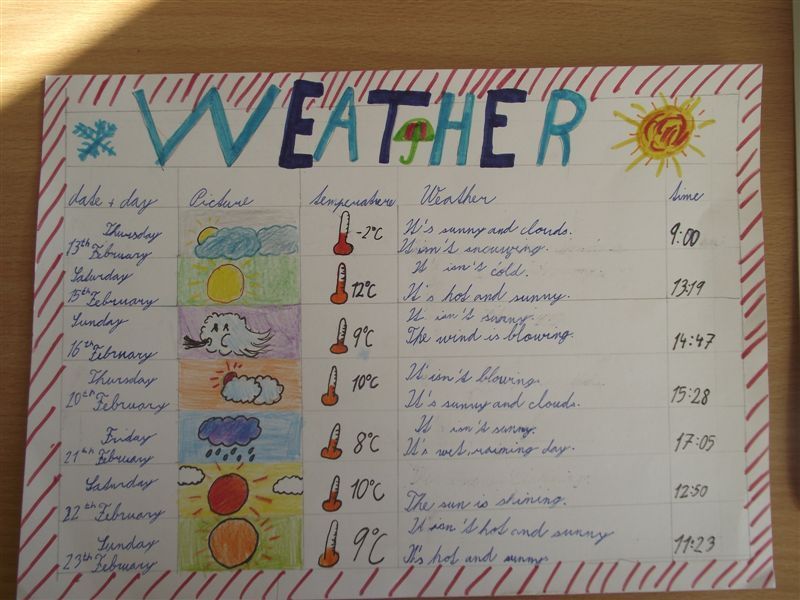 WEATHER
date + day Picture temperature Weather time
Thursday
13th February
-2°C
It's sunny and clouds.
It isn't snowing.
9:00
Saturday
15th February
12°C
It isn't cold.
It's hot and sunny.
13:19
Sunday
16th February
9°C
It isn't sunny.
The wind is blowing.
14:47
Thursday
20th February
10°C
It isn't blowing.
It's sunny and clouds.
15:28
Friday
21th February
8°C
It isn't sunny.
It's wet, raining day.
17:05
Saturday
22th February
10°C
The sun is shining.
12:50
Sunday
23th February
9°C
It isn't hot and sunny
It's hot and
11:23